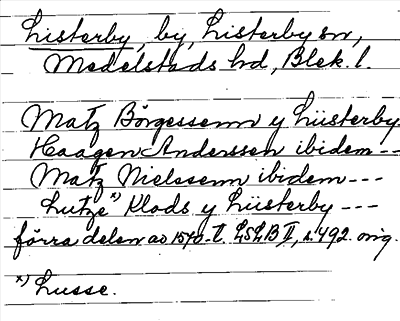 Listerby, by, Listerby sn,
Medelstads hd, Blek. l.
Matz Börgessenn y Lüsterby
Haagen Anderssen ibidem --
Matz Nielssenn ibidem ---
Lutze x) Klods y Lüsterby ---
förra delen av 1540-t. LSLB II, s. 492. orig.
x) Lusse.